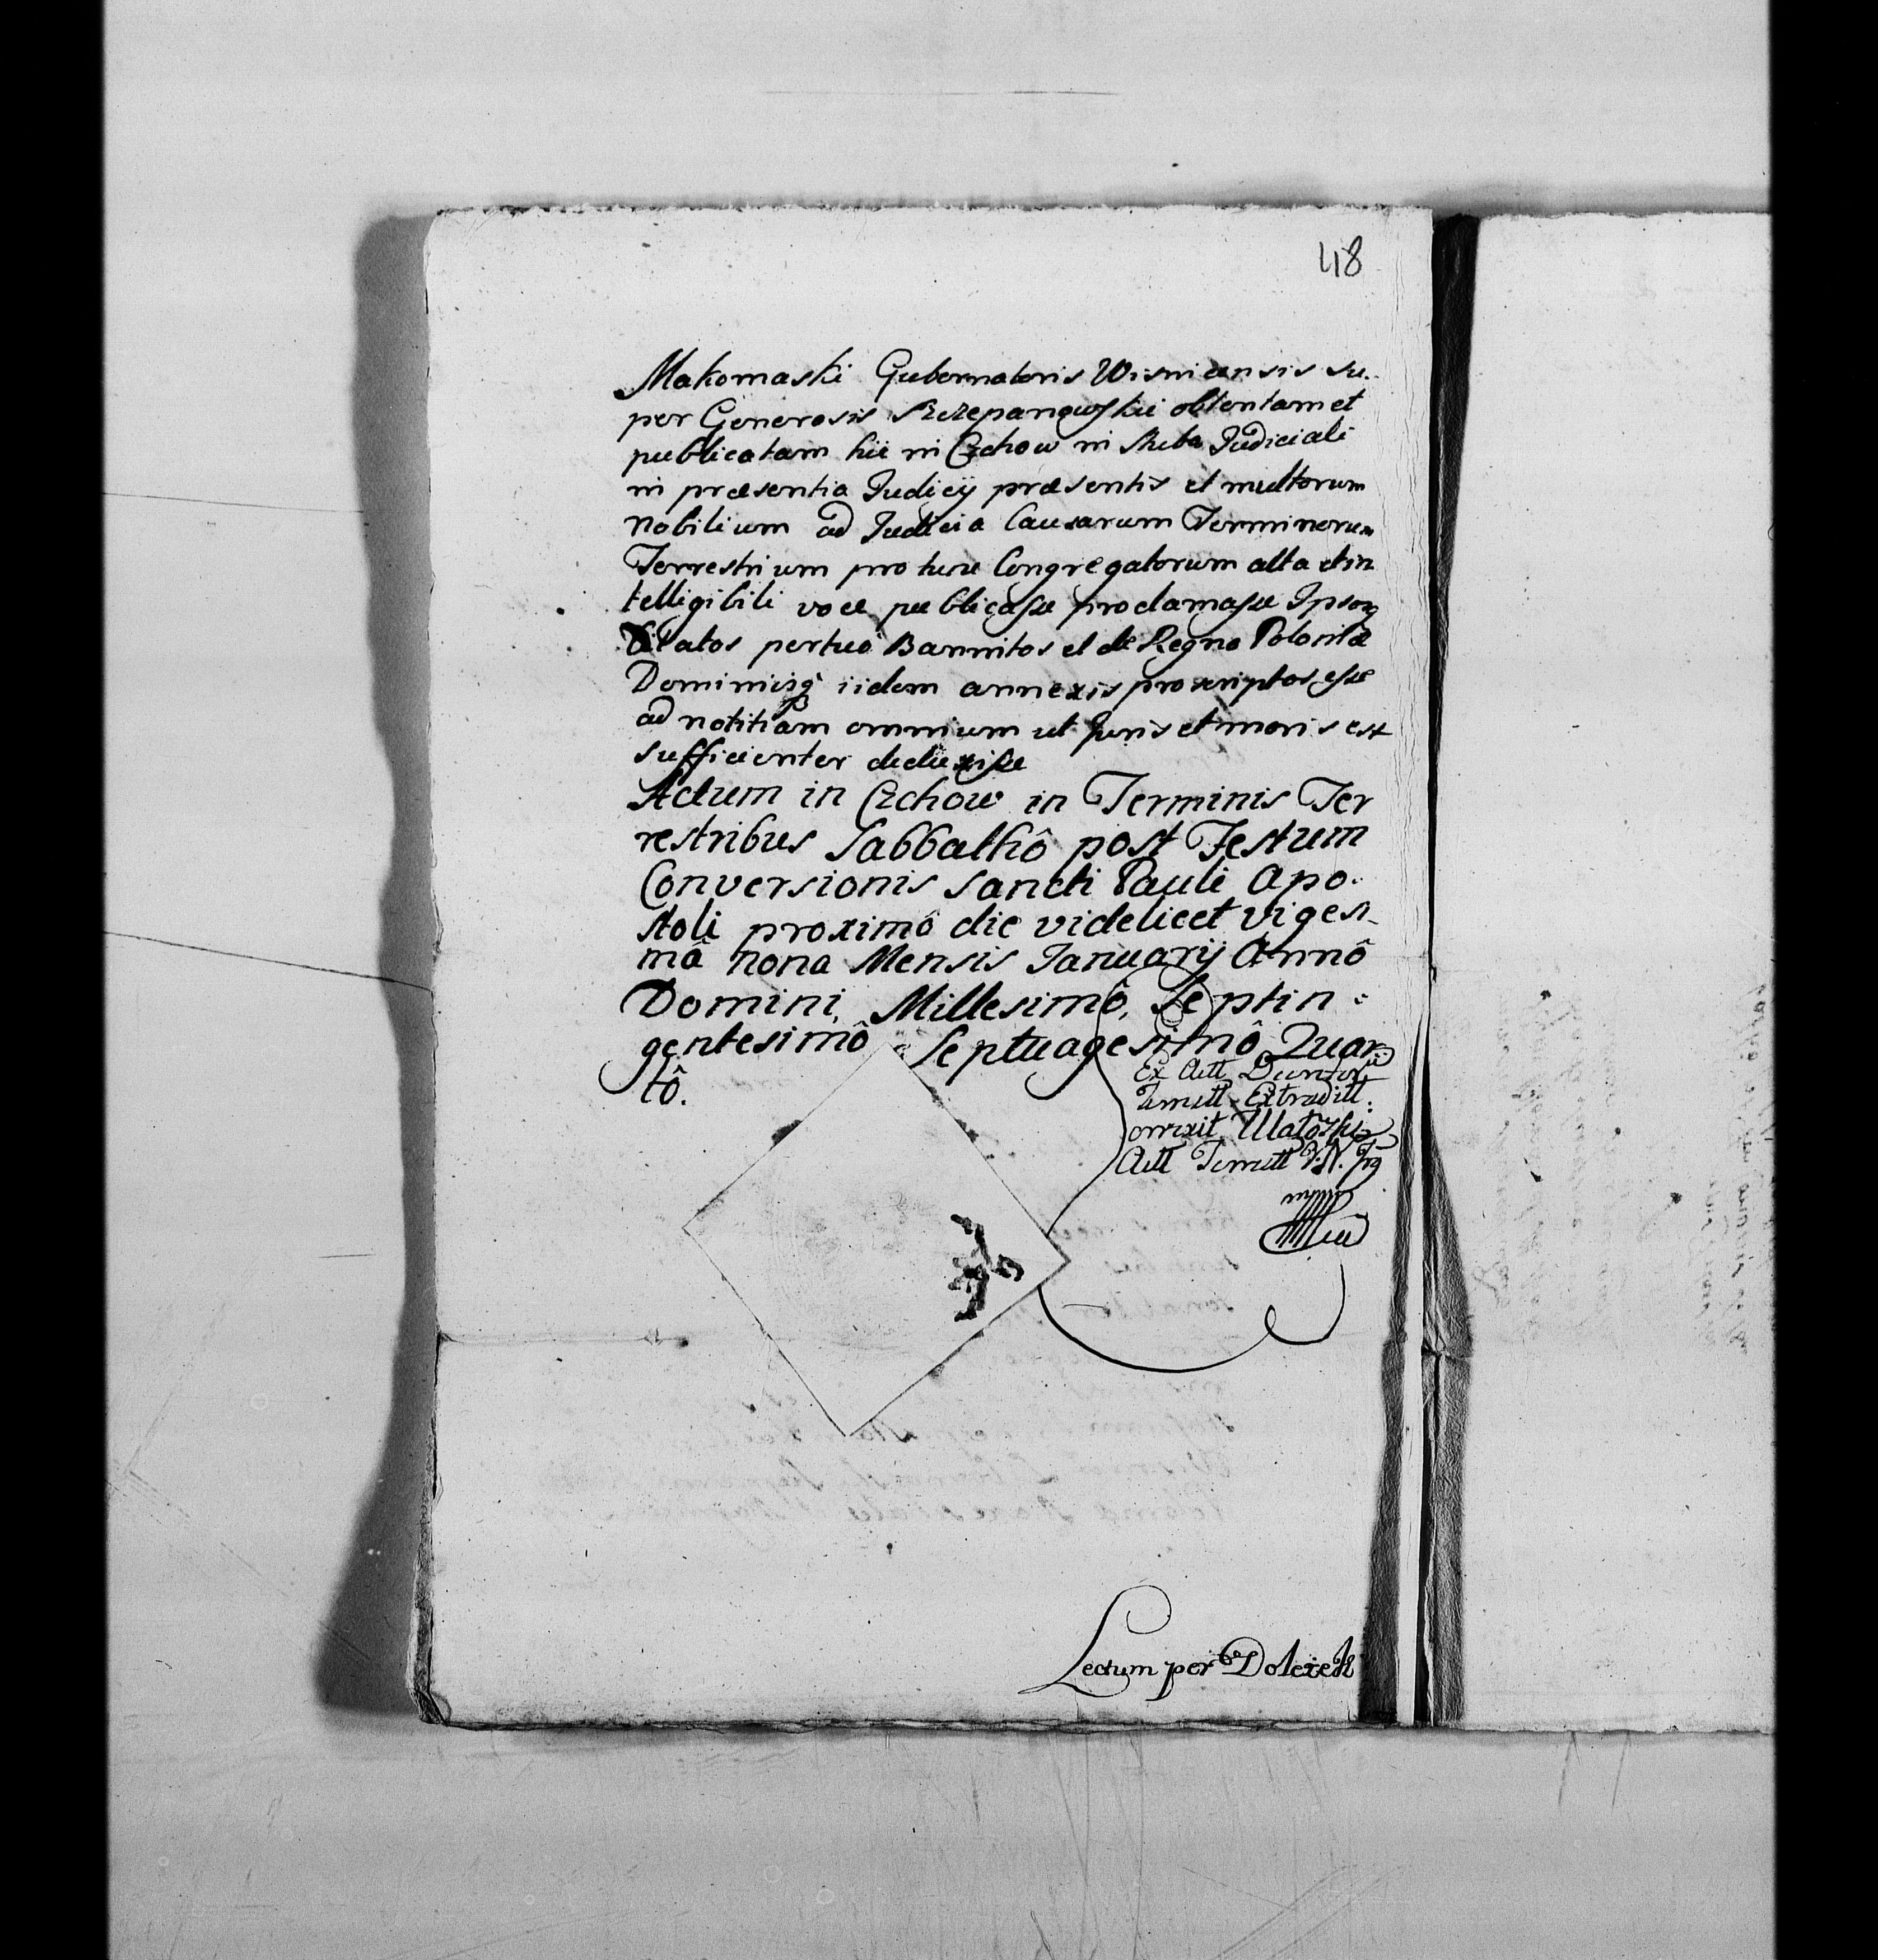 48
Makomaski Gubernatoris Wisnicensis su-
per Generosis Szczepanowskie obtentam et
publicatam hic in Czchow in Stuba Judiciali
in præsentia Judicij præsentis et multorum
Nobilium ad Judicia Causarum Terminorum
Terrestrium pro tunc Congregatorum alta et in
telligibili voce publicasse proclamasse Ipsosq
Citatos pertuo Bannitos et de Regno Poloniæ
Dominiisq iidem annexis proscriptos esse
ad notitiam omnium ut Juris et moris est
sufficienter deduxisse
Actum in Czchow in Terminis Ter
restribus Sabbathô post Festum
Conversionis Sancti Pauli Apo-
stoli proximô die videlicet vigesi-
mâ nona Mensis Januarij Annô
Domini Millesimô, Septin-
gentesimô Septuagesimô Quar
tô.
Ex Actt
Terrett Extraditt:
Actt Terrett
Lectum per